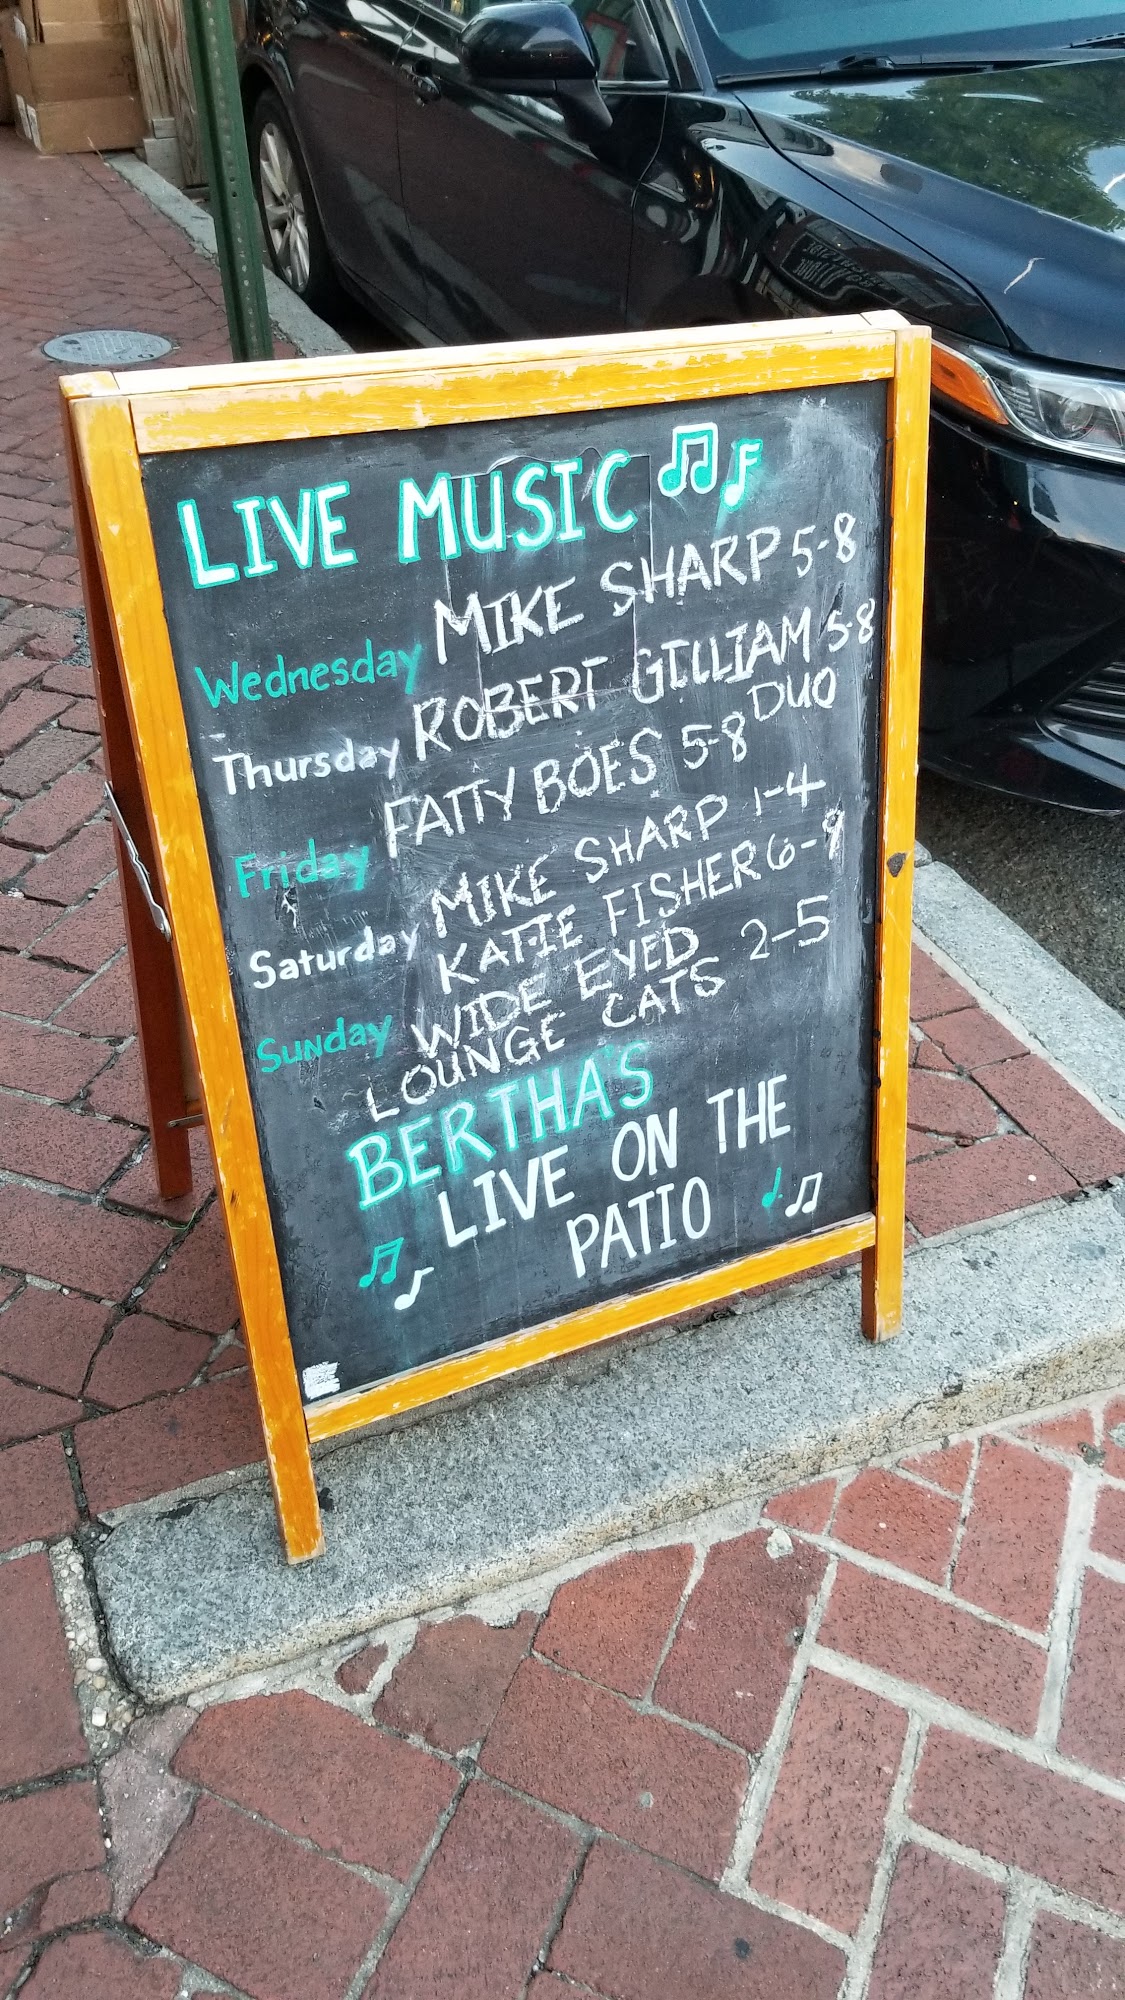 LIVE MUSIC
Wednesday MIKE SHARP 5-8
Thursday ROBERT GILLIAM 5-8
DUO
Friday FATTY BOES 5-8
Saturday MIKE SHARP 1-4
KATIE FISHER 6-9
Sunday WIDE EYED 2-5
LOUNGE CATS
BERTHA'S
LIVE ON THE
PATIO